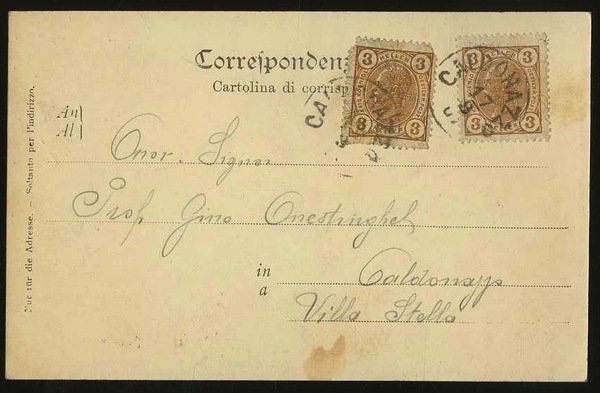 Correſponden
Cartolina di corrisp
An
Al
Onor. Signor
Prof. Gino Onestinghel
in
a
Caldonazzo
Villa Stella
Nur für die Adresse. – Soltanto per l'indirizzo.
3 3
HELLER
3 3
3 3
3 3
CALDONAZZO
17